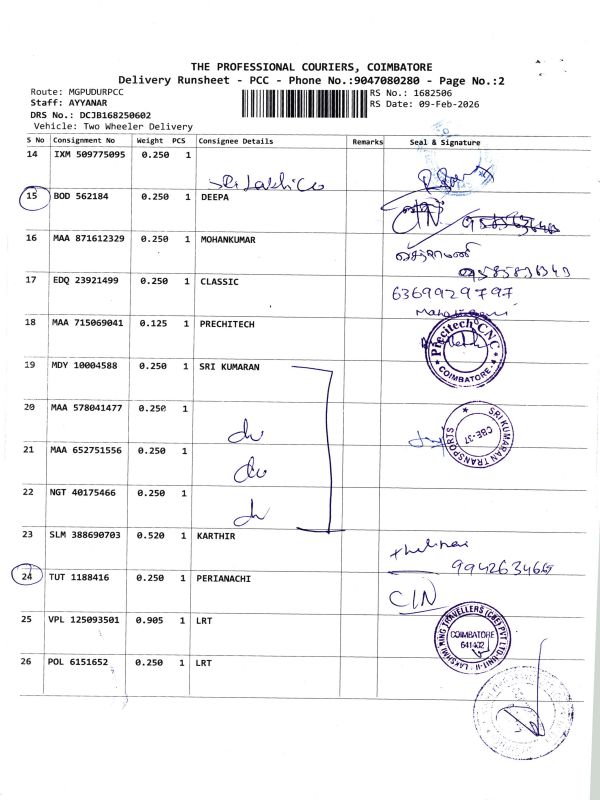 THE PROFESSIONAL COURIERS, COIMBATORE
Delivery Runsheet - PCC - Phone No.:9047080280 - Page No.:2
Route: MGPUDURPCC
RS No.: 1682506
Staff: AYYANAR
RS Date: 09-Feb-2026
DRS No.: DCJB168250602
Vehicle: Two Wheeler Delivery
S No Consignment No Weight PCS Consignee Details Remarks Seal & Signature
14 IXM 509775095 0.250 1
15 BOD 562184 0.250 1 DEEPA
CIN
16 MAA 871612329 0.250 1 MOHANKUMAR
17 EDQ 23921499 0.250 1 CLASSIC
6369929797
18 MAA 715069041 0.125 1 PRECHITECH
Precitech CNC
COIMBATORE
19 MDY 10004588 0.250 1 SRI KUMARAN
20 MAA 578041477 0.250 1
SRI KUMARAN TRANSPORTS
CBE-37
21 MAA 652751556 0.250 1
22 NGT 40175466 0.250 1
23 SLM 388690703 0.520 1 KARTHIR
24 TUT 1188416 0.250 1 PERIANACHI
CIN
25 VPL 125093501 0.905 1 LRT
LAKSHMI RING TRAVELLERS (CBE) PVT LTD-UNIT-II
COIMBATORE
641402
26 POL 6151652 0.250 1 LRT